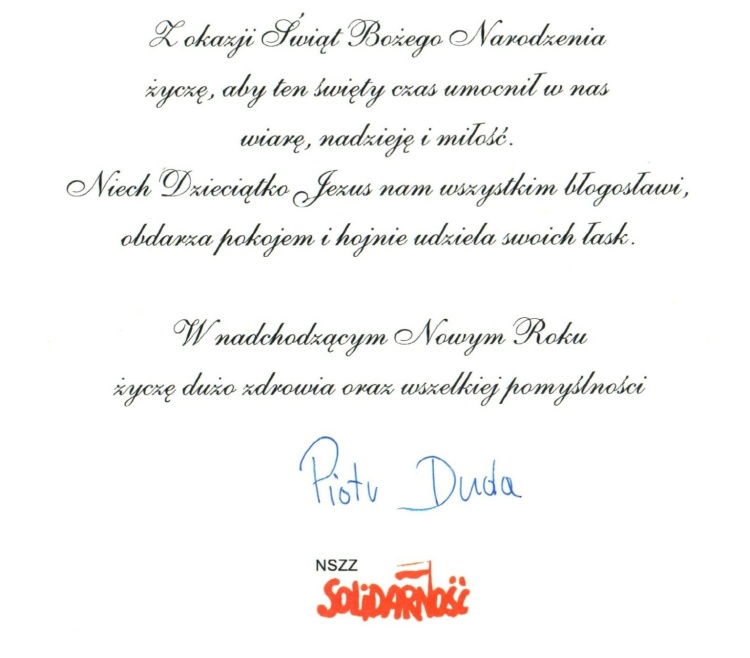 Z okazji Świąt Bożego Narodzenia
życzę, aby ten święty czas umocnił w nas
wiarę, nadzieję i miłość.
Niech Dzieciątko Jezus nam wszystkim błogosławi,
obdarza pokojem i hojnie udziela swoich łask.
W nadchodzącym Nowym Roku
życzę dużo zdrowia oraz wszelkiej pomyślności
Piotr Duda
NSZZ
SOLiDARNOŚĆ